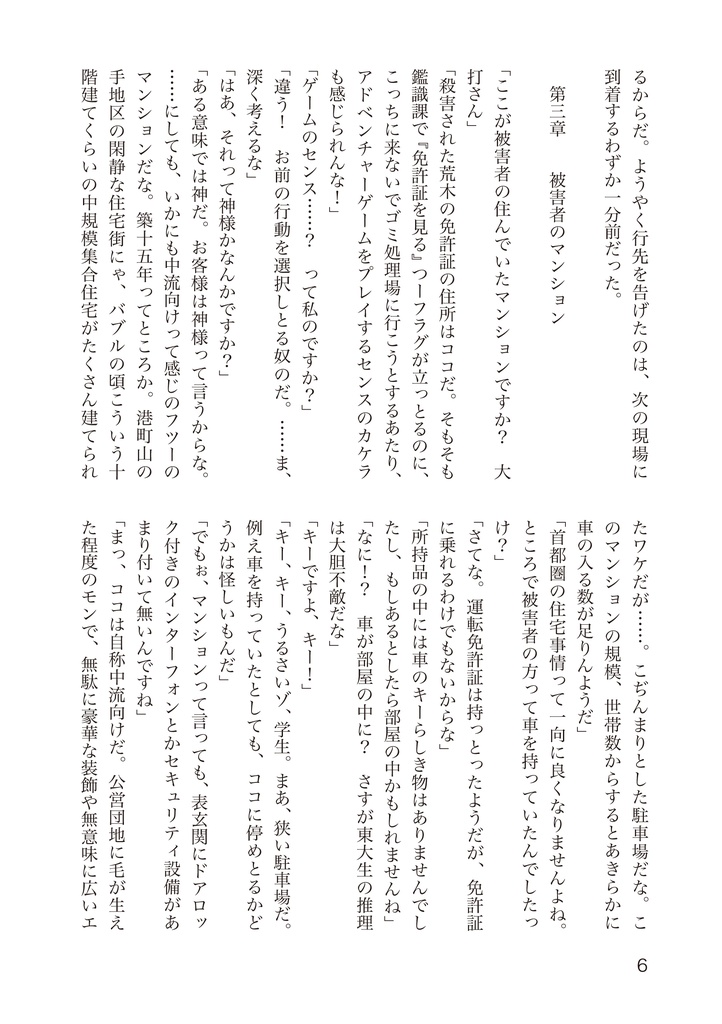 るからだ。ようやく行先を告げたのは、次の現場に
到着するわずか一分前だった。
第三章　　被害者のマンション
「ここが被害者の住んでいたマンションですか？　大
打さん」
「殺害された荒木の免許証の住所はココだ。そもそも
鑑識課で『免許証を見る』つーフラグが立っとるのに、
こっちに来ないでゴミ処理場に行こうとするあたり、
アドベンチャーゲームをプレイするセンスのカケラ
も感じられんな！」
「ゲームのセンス……？　って私のですか？」
「違う！　お前の行動を選択しとる奴のだ。……ま、
深く考えるな」
「はあ、それって神様かなんかですか？」
「ある意味では神だ。お客様は神様って言うからな。
……にしても、いかにも中流向けって感じのフツーの
マンションだな。築十五年ってところか。港町山の
手地区の閑静な住宅街にゃ、バブルの頃こういう十
階建てくらいの中規模集合住宅がたくさん建てられ
たワケだが……。こぢんまりとした駐車場だな。こ
のマンションの規模、世帯数からするとあきらかに
車の入る数が足りんようだ」
「首都圏の住宅事情って一向に良くなりませんよね。
ところで被害者の方って車を持っていたんでしたっ
け？」
「さてな。運転免許証は持っとったようだが、免許証
に乗れるわけでもないからな」
「所持品の中には車のキーらしき物はありませんでし
たし、もしあるとしたら部屋の中かもしれませんね」
「なに！？　車が部屋の中に？　さすが東大生の推理
は大胆不敵だな」
「キーですよ、キー！」
「キー、キー、うるさいゾ、学生。まあ、狭い駐車場だ。
例え車を持っていたとしても、ココに停めとるかど
うかは怪しいもんだ」
「でもぉ、マンションって言っても、表玄関にドアロッ
ク付きのインターフォンとかセキュリティ設備があ
まり付いて無いんですね」
「まっ、ココは自称中流向けだ。公営団地に毛が生え
た程度のモンで、無駄に豪華な装飾や無意味に広いエ
6